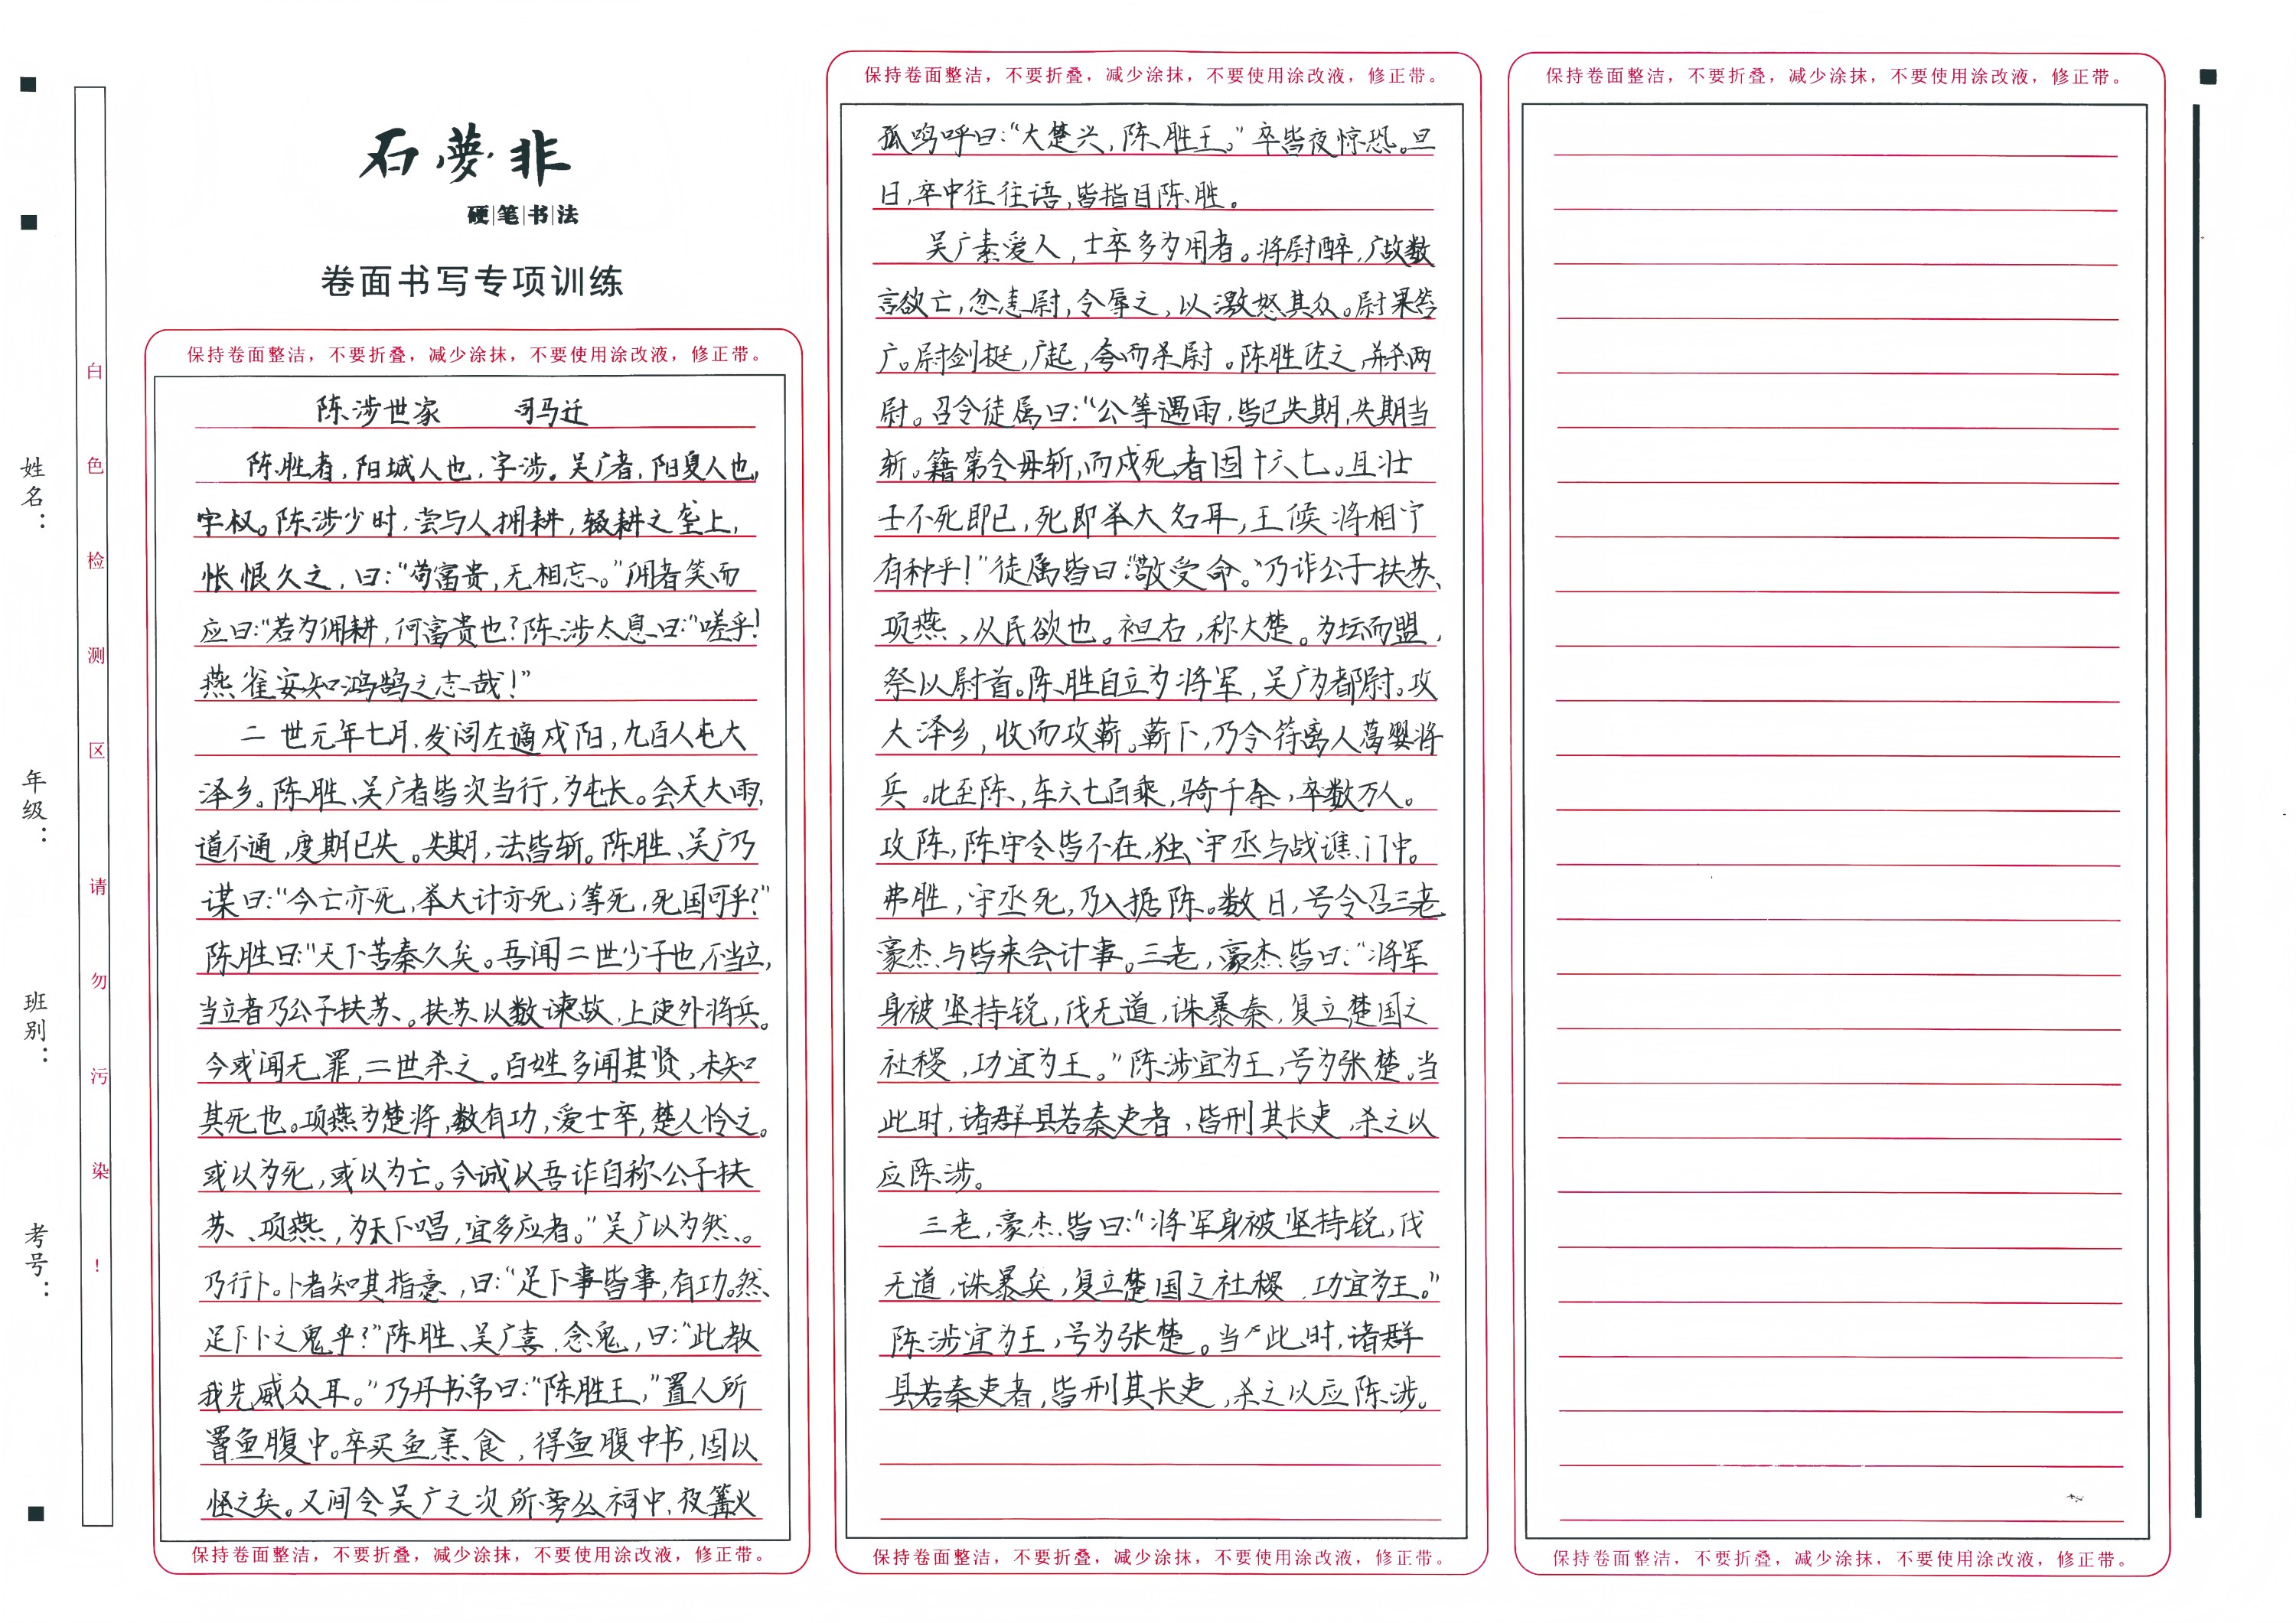 石夢非
硬笔书法
卷面书写专项训练
姓名：
年级：
班别：
考号：
白色检测区请勿污染！
保持卷面整洁，不要折叠，减少涂抹，不要使用涂改液，修正带。
陈涉世家 司马迁
陈胜者，阳城人也，字涉。吴广者，阳夏人也，
字权。陈涉少时，尝与人拥耕，辍耕之垄上，
怅恨久之，曰：“苟富贵，无相忘。”佣者笑而
应曰：“若为佣耕，何富贵也？陈涉太息曰：“嗟乎！
燕雀安知鸿鹄之志哉！”
二世元年七月，发闾左適戍阳，九百人屯大
泽乡。陈胜、吴广者皆次当行，为屯长。会天大雨，
道不通，度期已失。失期，法皆斩。陈胜、吴广乃
谋曰：“今亡亦死，举大计亦死；等死，死国可乎？”
陈胜曰：“天下苦秦久矣。吾闻二世少子也，不当立，
当立者乃公子扶苏。扶苏以数谏故，上使外将兵。
今或闻无罪，二世杀之。百姓多闻其贤，未知
其死也。项燕为楚将，数有功，爱士卒，楚人怜之。
或以为死，或以为亡。今诚以吾诈自称公子扶
苏、项燕，为天下唱，宜多应者。”吴广以为然。
乃行卜。卜者知其指意，曰：“足下事皆事，有功。然
足下卜之鬼乎？”陈胜、吴广喜，念鬼，曰：“此教
我先威众耳。”乃丹书帛曰：“陈胜王，”置人所
罾鱼腹中。卒买鱼烹食，得鱼腹中书，固以
怪之矣。又间令吴广之次所旁丛祠中，夜篝火
保持卷面整洁，不要折叠，减少涂抹，不要使用涂改液，修正带。
保持卷面整洁，不要折叠，减少涂抹，不要使用涂改液，修正带。
孤鸣呼曰：“大楚兴，陈胜王。”卒皆夜惊恐。旦
日，卒中往往语，皆指目陈胜。
吴广素爱人，士卒多为用者。将尉醉，广故数
言欲亡，忿恚尉，令辱之，以激怒其众。尉果笞
广。尉剑挺，广起，夺而杀尉。陈胜佐之，并杀两
尉。召令徒属曰：“公等遇雨，皆已失期，失期当
斩。籍第令毋斩，而戍死者固十六七。且壮
士不死即已，死即举大名耳，王候将相宁
有种乎！”徒属皆曰：“敬受命。”乃诈公子扶苏、
项燕，从民欲也。袒右，称大楚。为坛而盟，
祭以尉首。陈胜自立为将军，吴广为都尉。攻
大泽乡，收而攻蕲。蕲下，乃令符离人葛婴将
兵。比至陈，车六七百乘，骑千余，卒数万人。
攻陈，陈守令皆不在，独守丞与战谯门中。
弗胜，守丞死，乃入据陈。数日，号令召三老
豪杰与皆来会计事。三老，豪杰皆曰：“将军
身被坚持锐，伐无道，诛暴秦，复立楚国之
社稷，功宜为王。”陈涉宜为王，号为张楚。当
此时，诸群县若秦吏者，皆刑其长吏，杀之以
应陈涉。
三老，豪杰皆曰：“将军身被坚持锐，伐
无道，诛暴矣，复立楚国之社稷，功宜为王。”
陈涉宜为王，号为张楚。当此时，诸群
县若秦吏者，皆刑其长吏，杀之以应陈涉。
保持卷面整洁，不要折叠，减少涂抹，不要使用涂改液，修正带。
保持卷面整洁，不要折叠，减少涂抹，不要使用涂改液，修正带。
保持卷面整洁，不要折叠，减少涂抹，不要使用涂改液，修正带。